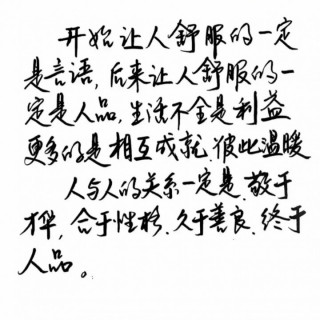 开始让人舒服的一定
是言语，后来让人舒服的一
定是人品，生活不全是利益
更多的是相互成就，彼此温暖
人与人的关系一定是，敬于
才华，合于性格，久于善良，终于
人品。